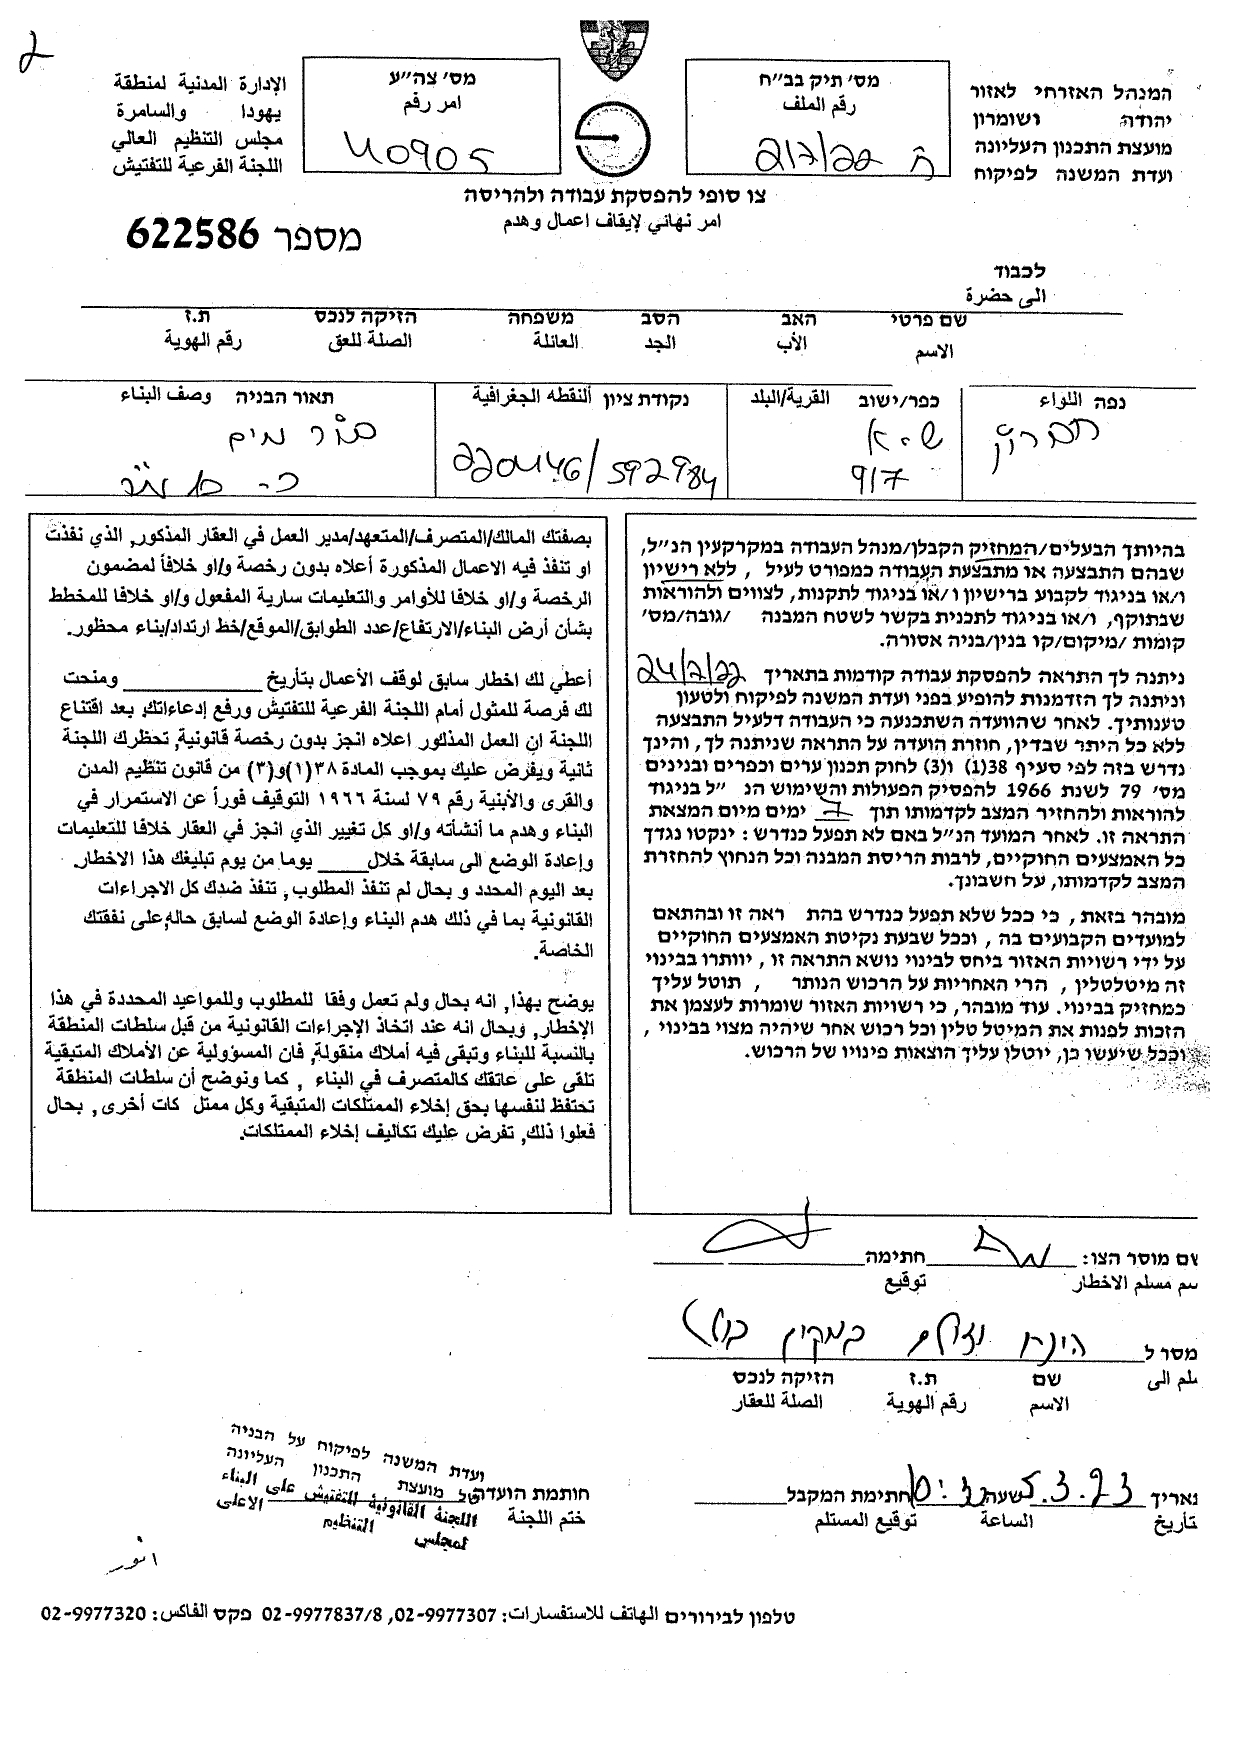 המנהל האזרחי לאזור
יהודה ושומרון
מועצת התכנון העליונה
ועדת המשנה לפיקוח
מס׳ תיק בב״ח
رقم الملف
ח 217/22
מס׳ צה״ע
امر رقم
40905
الإدارة المدنية لمنطقة
يهودا والسامرة
مجلس التنظيم العالي
اللجنة الفرعية للتفتيش
צו סופי להפסקת עבודה ולהריסה
امر نهائي لإيقاف اعمال وهدم
מספר 622586
לכבוד
الى حضرة
שם פרטי האב הסב משפחה הזיקה לנכס ת.ז
الاسم الأب الجد العائلة الصلة للعق رقم الهوية
נפה اللواء
חברון
כפר/ישוב القرية/البلد
ש.א
917
נקודת ציון ألنقطه الجغرافية
220446/592984
תאור הבניה وصف البناء
בור מים
בהיותך הבעלים/המחזיק הקבלן/מנהל העבודה במקרקעין הנ״ל,
שבהם התבצעה או מתבצעת העבודה כמפורט לעיל , ללא רישיון
ו/או בניגוד לקבוע ברישיון ו/או בניגוד לתקנות, לצווים ולהוראות
שבתוקף, ו/או בניגוד לתכנית בקשר לשטח המבנה /גובה/מס׳
קומות /מיקום/קו בנין/בניה אסורה.
ניתנה לך התראה להפסקת עבודה קודמות בתאריך 24/2/22
וניתנה לך הזדמנות להופיע בפני ועדת המשנה לפיקוח ולטעון
טענותיך. לאחר שהוועדה השתכנעה כי העבודה דלעיל התבצעה
ללא כל היתר שבדין, חוזרת הועדה על התראה שניתנה לך, והינך
נדרש בזה לפי סעיף 38(1) ו(3) לחוק תכנון ערים וכפרים ובנינים
מס׳ 79 לשנת 1966 להפסיק הפעולות והשימוש הנ ״ל בניגוד
להוראות ולהחזיר המצב לקדמותו תוך 7 ימים מיום המצאת
התראה זו. לאחר המועד הנ״ל באם לא תפעל כנדרש : ינקטו נגדך
כל האמצעים החוקיים, לרבות הריסת המבנה וכל הנחוץ להחזרת
המצב לקדמותו, על חשבונך.
מובהר בזאת , כי ככל שלא תפעל כנדרש בהת ראה זו ובהתאם
למועדים הקבועים בה , וככל שבעת נקיטת האמצעים החוקיים
על ידי רשויות האזור ביחס לבינוי נושא התראה זו , יוותרו בבינוי
זה מיטלטלין , הרי האחריות על הרכוש הנותר , תוטל עליך
כמחזיק בבינוי. עוד מובהר, כי רשויות האזור שומרות לעצמן את
הזכות לפנות את המיטל טלין וכל רכוש אחר שיהיה מצוי בבינוי ,
וככל שיעשו כן, יוטלו עליך הוצאות פינויו של הרכוש.
بصفتك المالك/المتصرف/المتعهد/مدير العمل في العقار المذكور, الذي نفذت
او تنفذ فيه الاعمال المذكورة أعلاه بدون رخصة و/او خلافاً لمضمون
الرخصة و/او خلافا للأوامر والتعليمات سارية المفعول و/او خلافا للمخطط
بشأن أرض البناء/الارتفاع/عدد الطوابق/الموقع/خط ارتداد/بناء محظور.
أعطي لك اخطار سابق لوقف الأعمال بتأريخ ____________ ومنحت
لك فرصة للمثول أمام اللجنة الفرعية للتفتيش ورفع إدعاءاتك, بعد اقتناع
اللجنة ان العمل المذكور اعلاه انجز بدون رخصة قانونية, تحظرك اللجنة
ثانية ويفرض عليك بموجب المادة ٣٨(١)و(٣) من قانون تنظيم المدن
والقرى والأبنية رقم ٧٩ لسنة ١٩٦٦ التوقيف فوراً عن الاستمرار في
البناء وهدم ما أنشأته و/او كل تغيير الذي انجز في العقار خلافا للتعليمات
وإعادة الوضع الى سابقة خلال ____ يوما من يوم تبليغك هذا الاخطار.
بعد اليوم المحدد و بحال لم تنفذ المطلوب, تنفذ ضدك كل الاجراءات
القانونية بما في ذلك هدم البناء وإعادة الوضع لسابق حاله, على نفقتك
الخاصة.
يوضح بهذا, انه بحال ولم تعمل وفقا للمطلوب وللمواعيد المحددة في هذا
الإخطار, وبحال انه عند اتخاذ الإجراءات القانونية من قبل سلطات المنطقة
بالنسبة للبناء وتبقى فيه أملاك منقولة, فان المسؤولية عن الأملاك المتبقية
تلقى على عاتقك كالمتصرف في البناء , كما ونوضح أن سلطات المنطقة
تحتفظ لنفسها بحق إخلاء الممتلكات المتبقية وكل ممتل كات أخرى, بحال
فعلوا ذلك, تفرض عليك تكاليف إخلاء الممتلكات.
שם מוסר הצו: חתימה
سم مسلم الاخطار توقيع
מסר ל הונח במקום
سلم الى
שם ת.ז הזיקה לנכס
الاسم رقم الهوية الصلة للعقار
תאריך 5.3.23 שעה חתימת המקבל
تأريخ الساعة توقيع المستلم
חותמת הועדה
ختم اللجنة
ועדת המשנה לפיקוח על הבניה
של מועצת התכנון העליונה
اللجنة القانونية للتفتيش على البناء
لمجلس التنظيم الاعلى
انور
טלפון לבירורים الهاتف للاستفسارات: 02-9977307, 02-9977837/8 פקס الفاكس: 02-9977320